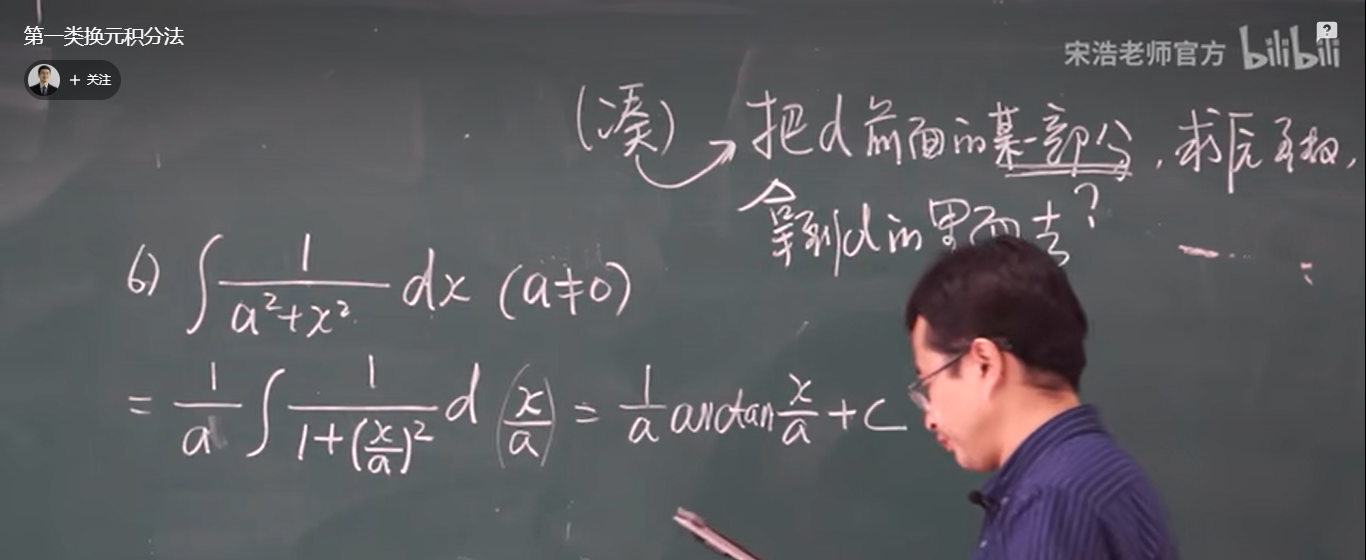 第一类换元积分法
+ 关注
宋浩老师官方 bilibili
(凑) 把d前面的某一部分,求原函数,
拿到d的里面去?
6) ∫ 1/(a²+x²) dx (a≠0)
= 1/a ∫ 1/(1+(x/a)²) d(x/a) = 1/a arctan x/a + C